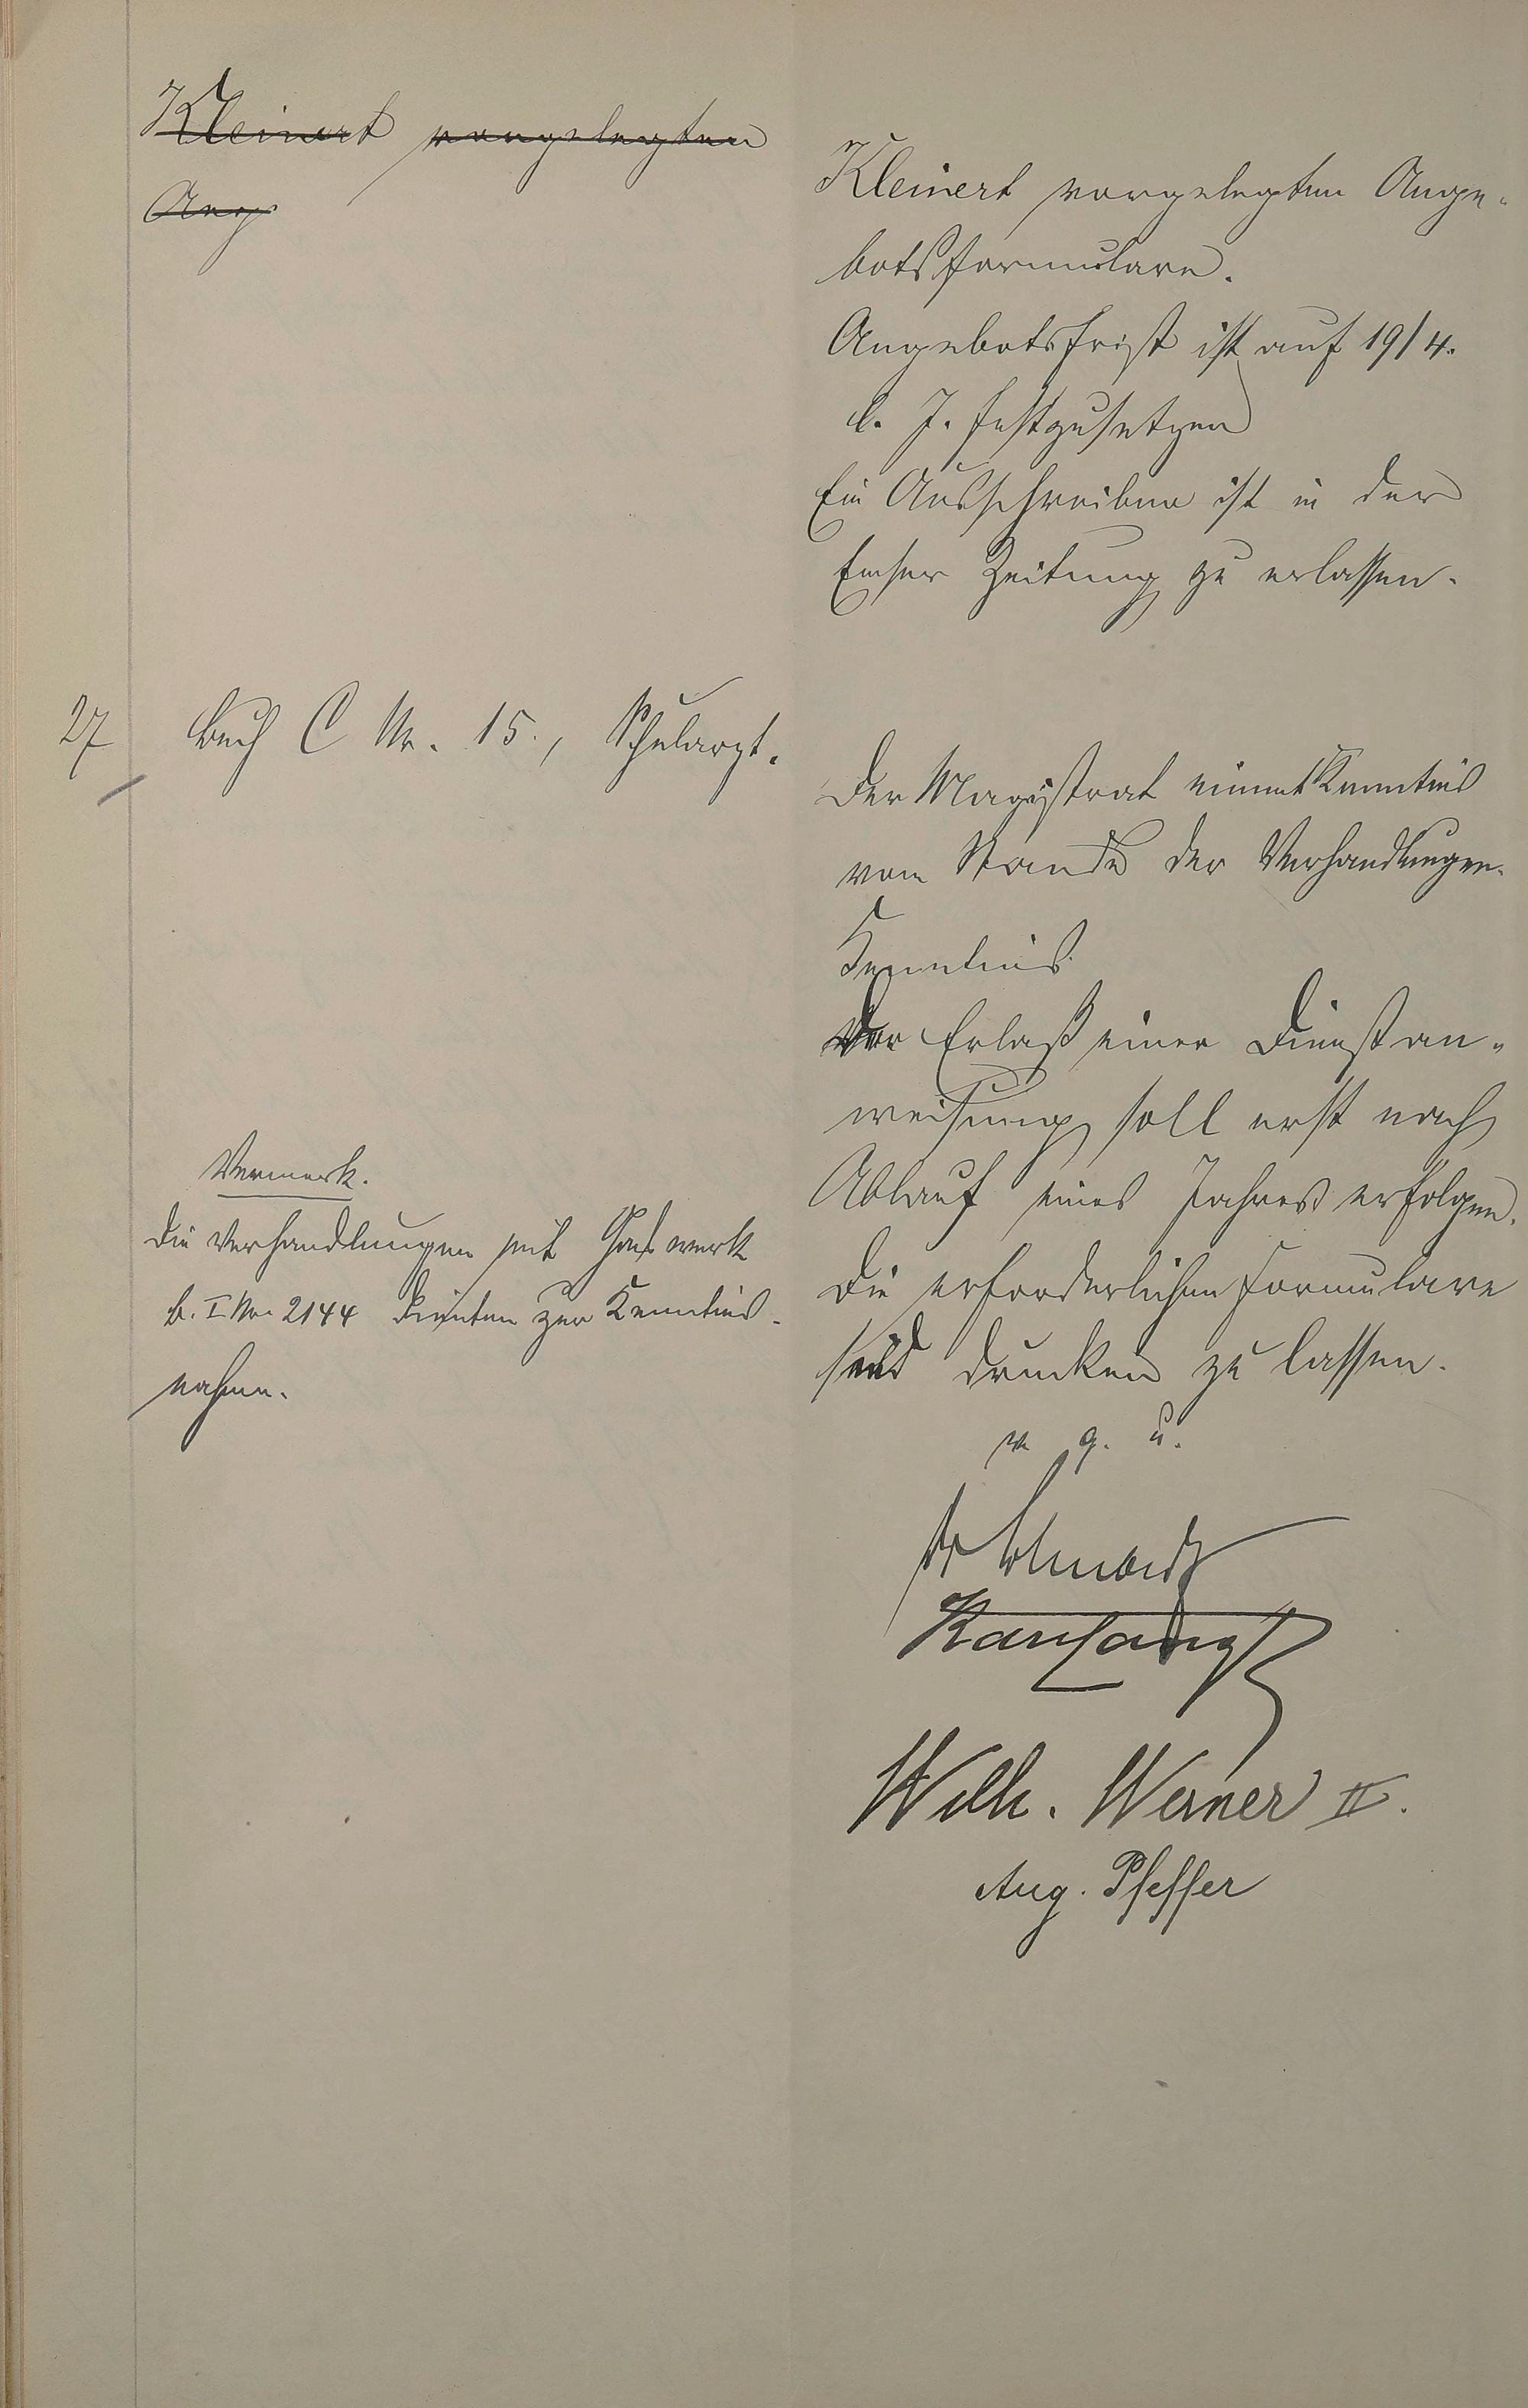 Kleinert vorgelegten
Ang
Kleinert vorgelegten Ange-
botsformulare.
Angebotsfrist ist auf 19/4.
l. J. festzusetzen
Ein Ausschreiben ist in der
Emser Zeitung zu erlassen.
27 Buch C Nr. 15., Schularzt.
Der Magistrat nimmt Kenntnis
vom Stande der Verhandlungen.
Kenntnis.
Der Erlaß einer Dienstan-
weisung soll erst nach
Ablauf eines Jahres erfolgen.
Die erforderlichen Formulare
sind drucken zu lassen.
Vermerk.
Die Verhandlungen mit Gaswerk
B. I Nr. 2144 dienten zur Kenntnis-
nahme.
v g. u.
Dr Schubert
Wilh. Werner II.
Aug. Pfeffer